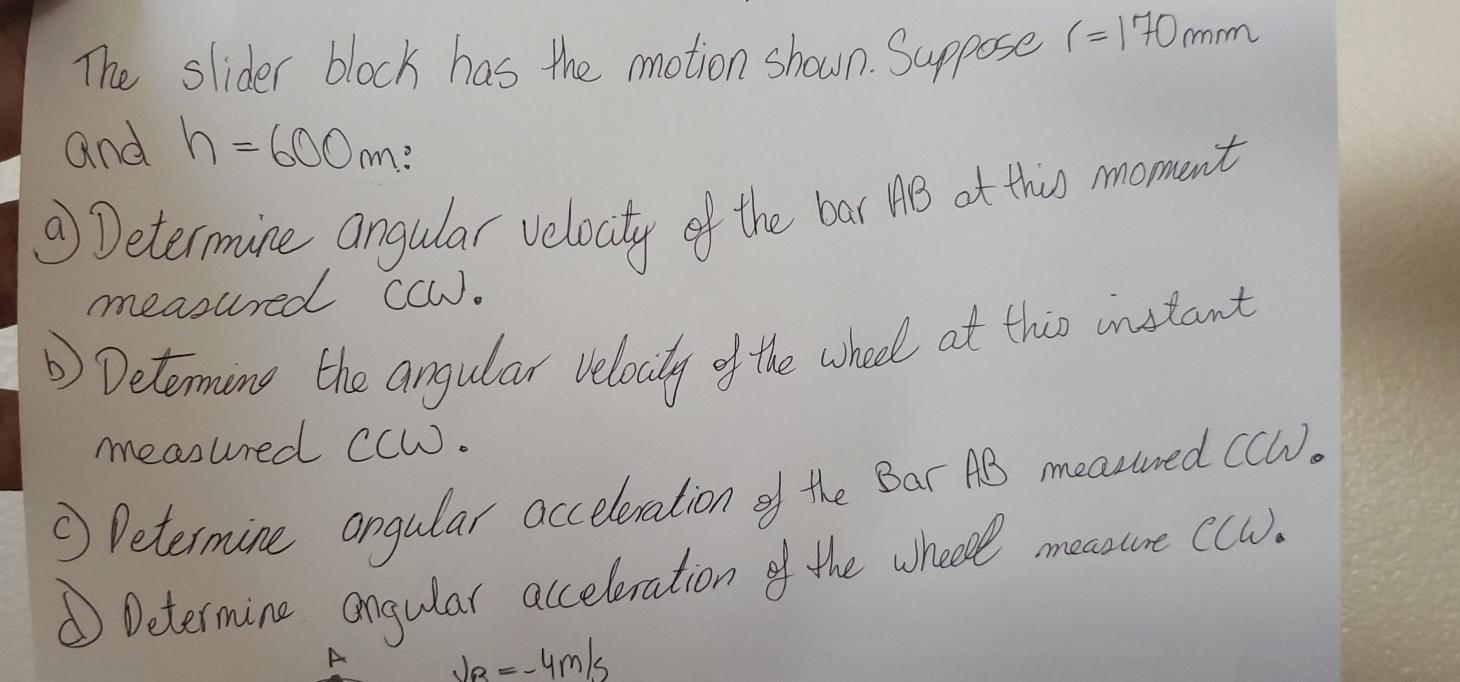 The slider block has the motion shown. Suppose r=170mm
and h=600m:
a) Determine angular velocity of the bar AB at this moment
measured CCW.
b) Determins the angular velocity of the wheel at this instant
measured CCW.
c) Determine angular acceleration of the Bar AB measured CCW.
d) Determine angular acceleration of the wheel measure CCW.
A VB=-4m/s